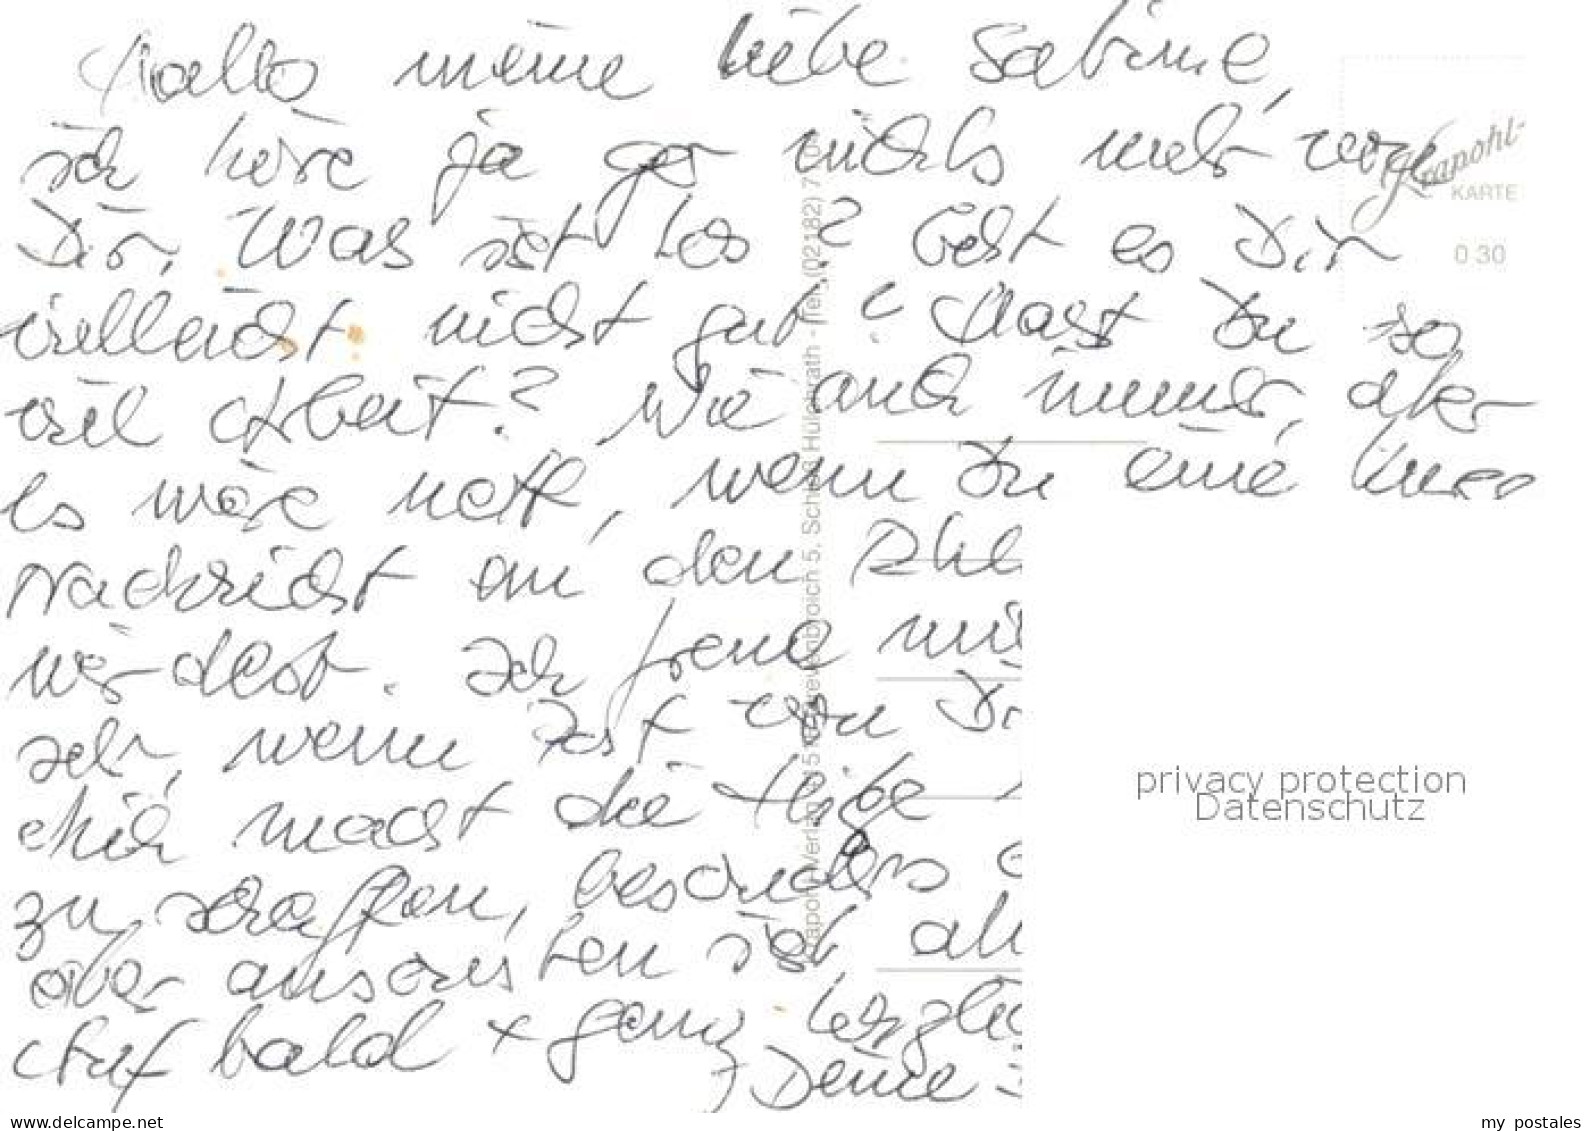 Hallo meine liebe Sabine,
ich höre ja gar nichts mehr von
Dir. Was ist los? Geht es Dir
vielleicht nicht gut? Hast Du so
viel Arbeit? Wie auch immer, aber
es wäre nett, wenn Du eine kurze
Nachricht an den
werdest. Ich freue
sehr, wenn Post von
Mir macht die Hitze
zu schaffen, besonders
aber ansonsten ist
Auf bald + ganz
Deine
Krapohl-
KARTE
0 30
Krapohl-Verlag
Grevenbroich 5, Schloß Hülchrath - Tel. (02182)
privacy protection
Datenschutz
www.delcampe.net
my postales